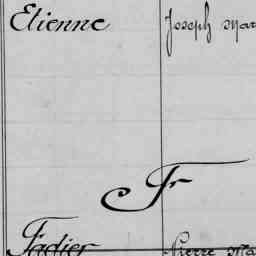 Etienne Joseph Mar
Fr
Fadier Pierre Ma